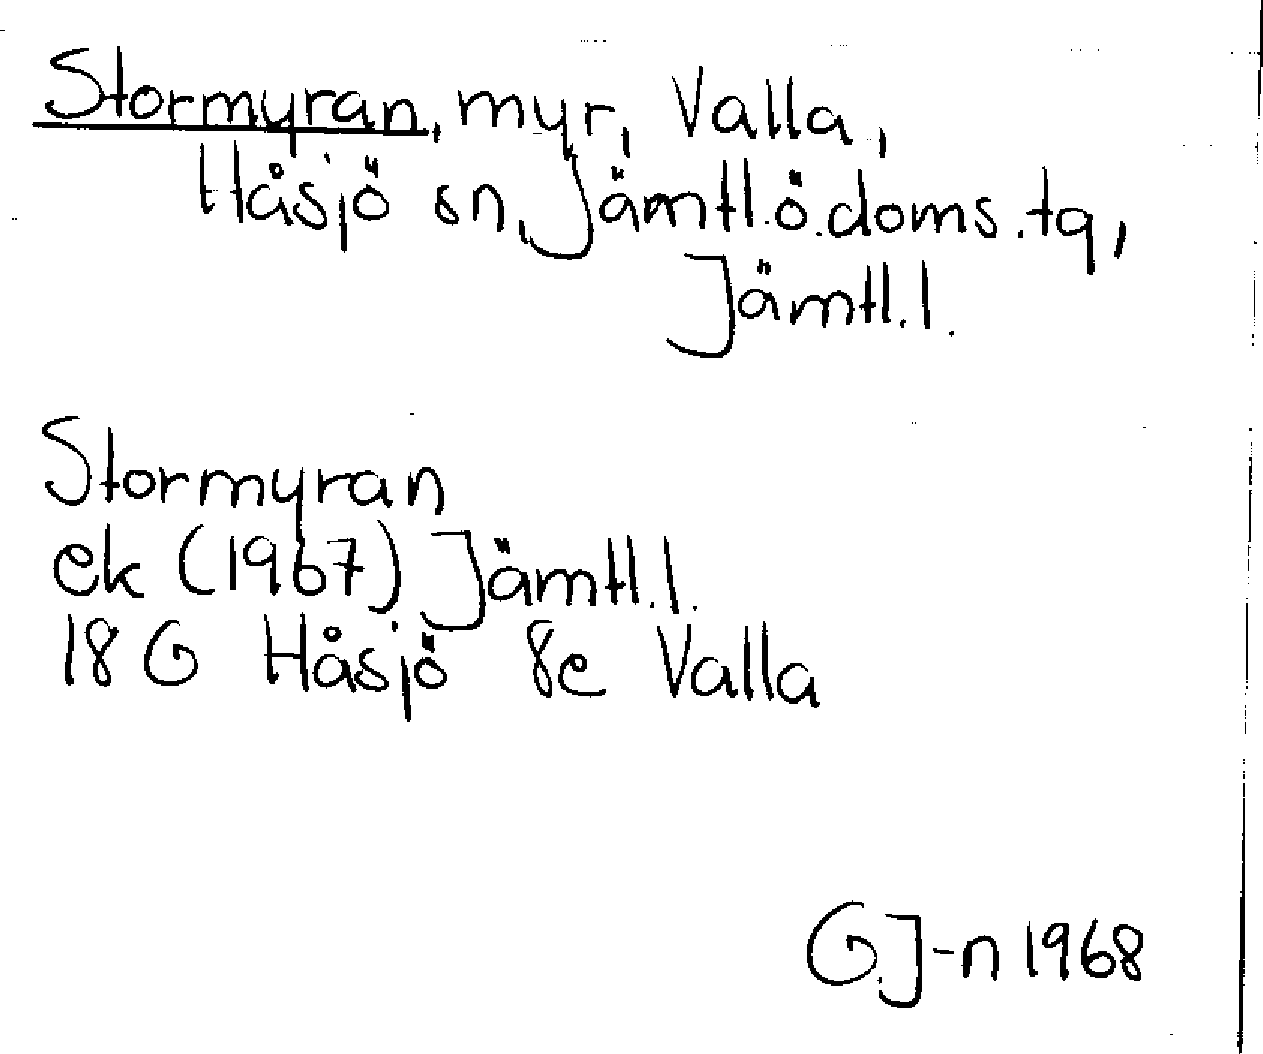 Stormyran, myr, Valla,
Håsjö sn, Jämtl.ö.doms.tg,
Jämtl.l.
Stormyran
ek (1967) Jämtl.l.
18 G Håsjö 8e Valla
G.J-n 1968